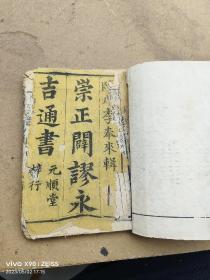 李奉來輯
崇正闢謬永
吉通書
元順堂
梓行
VIVO X90 | ZEISS
2023/05/02 17:15